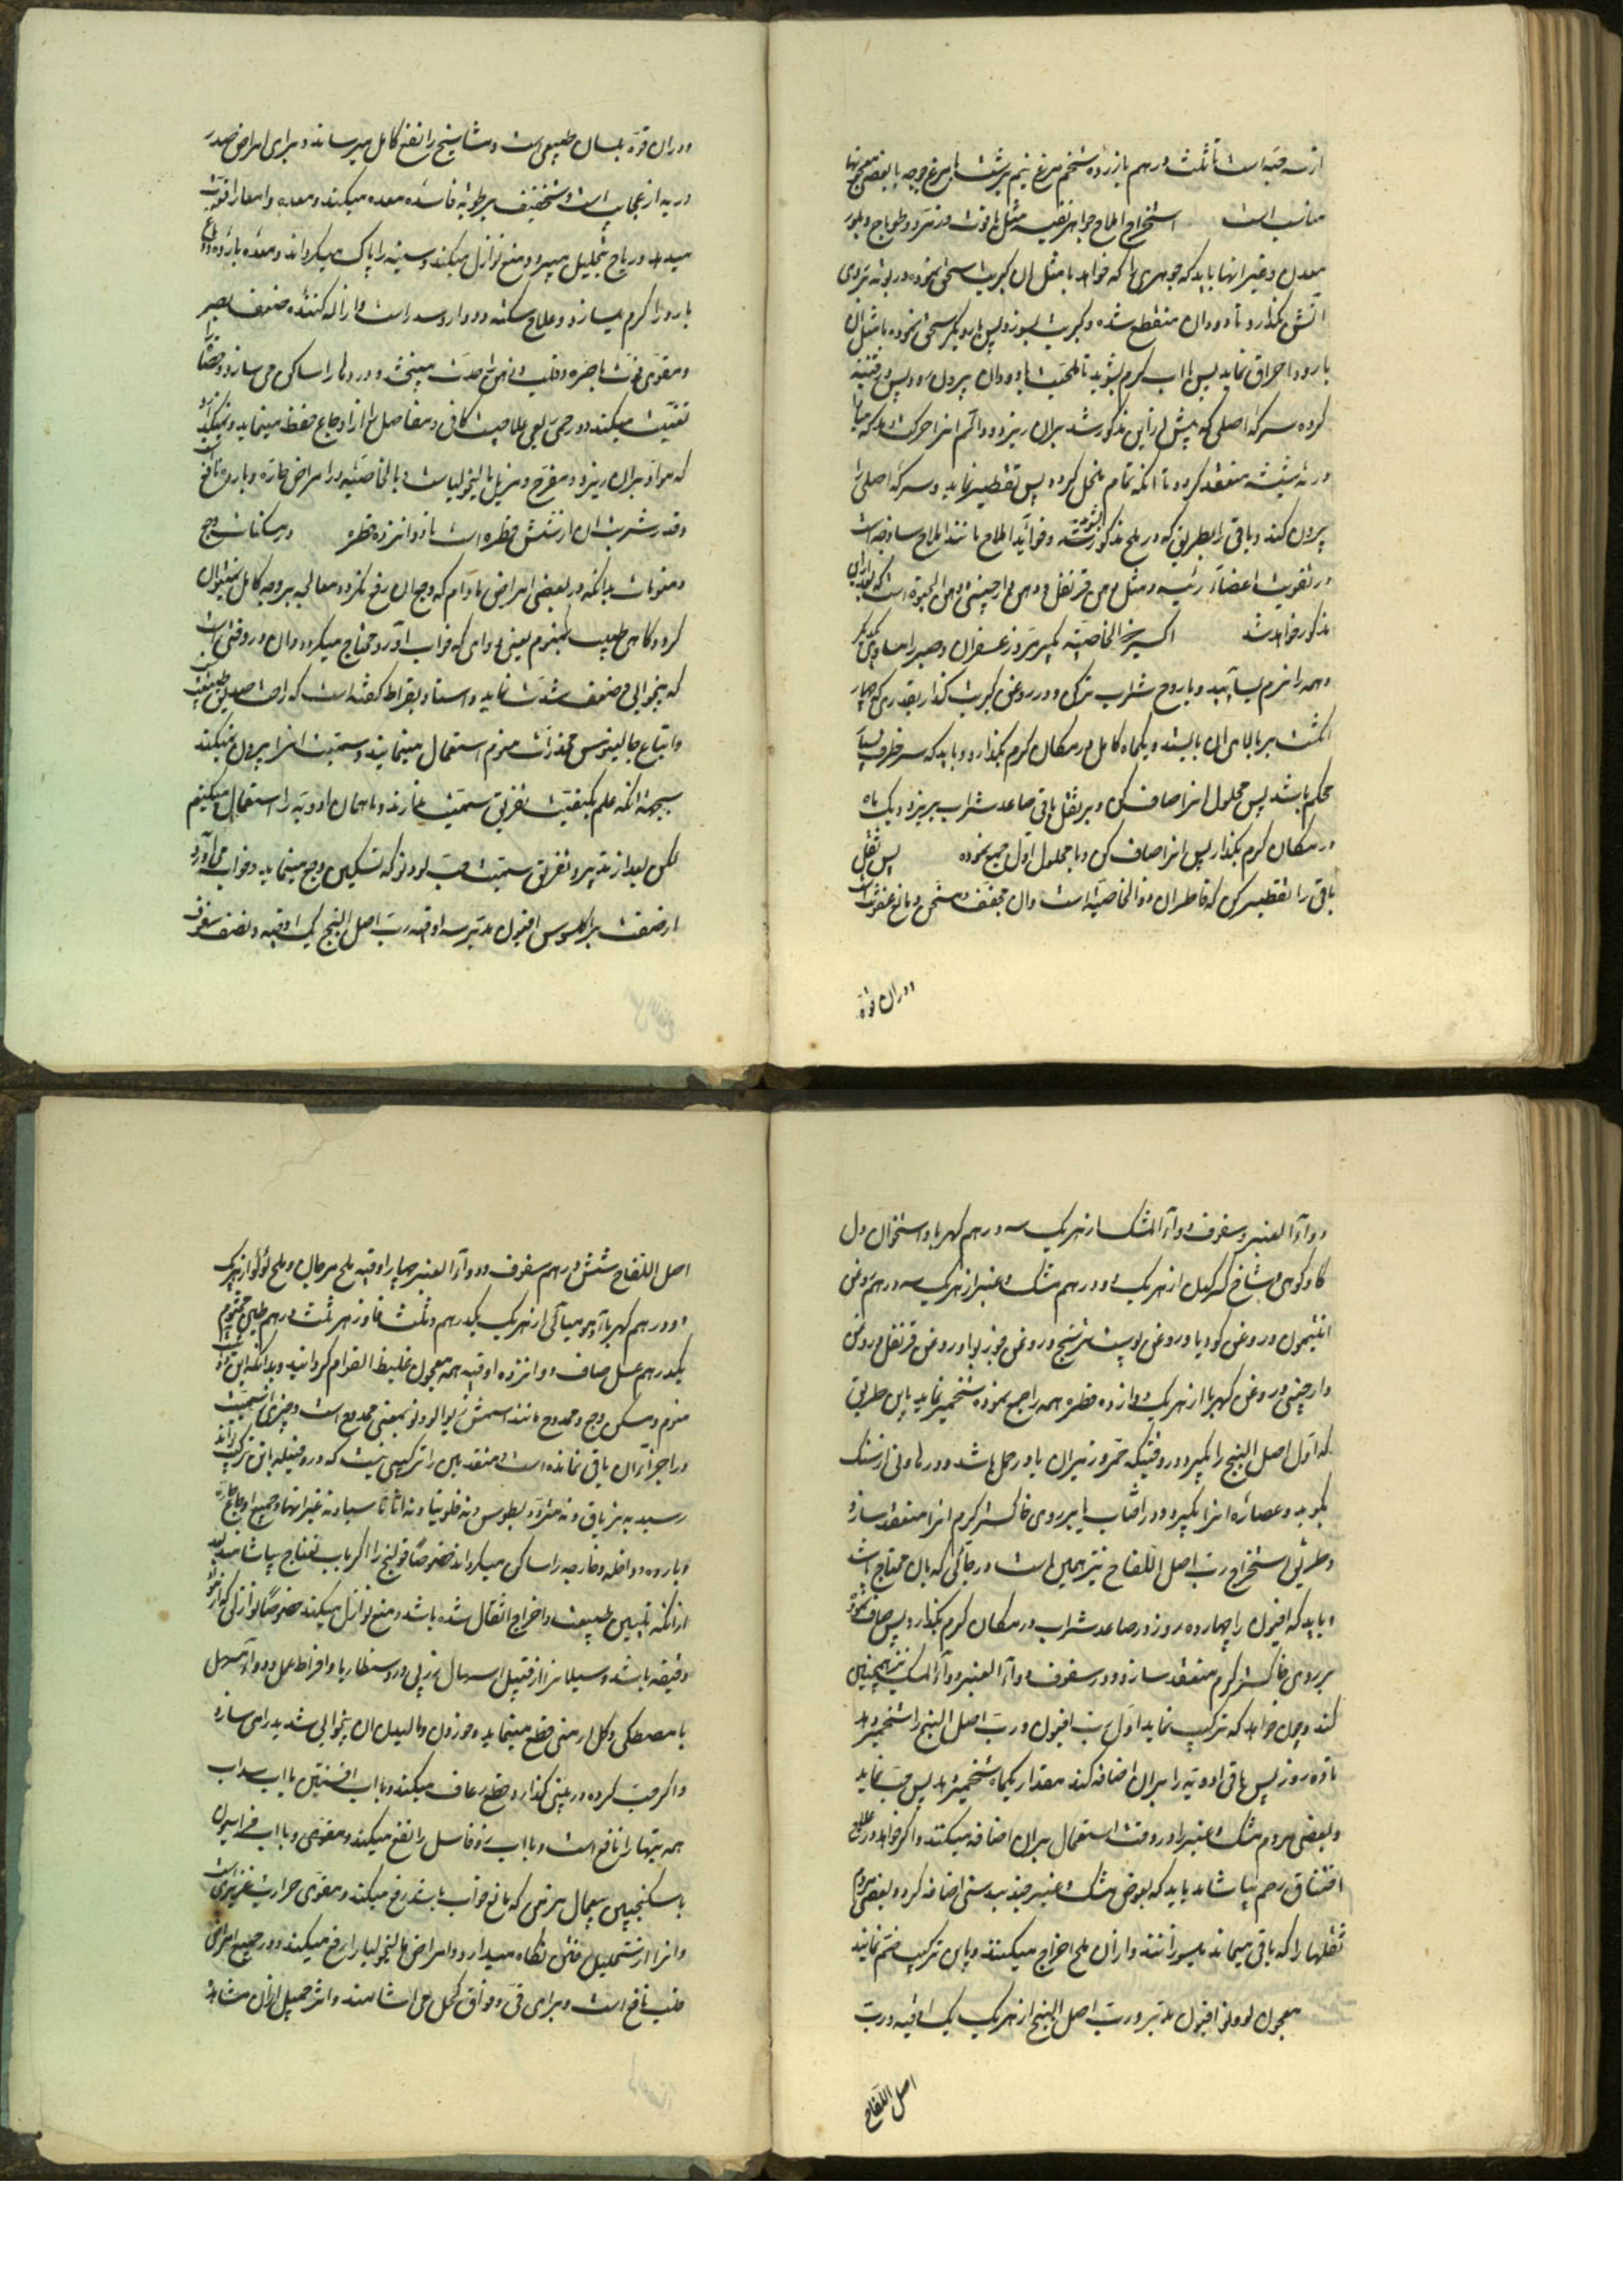 از سه حبه است تا ثلث درهم با زرده تخم مرغ نیم برشت یا مرغ جوجه یا بعضی معجونها
مناسب است استخراج املاح جواهر نفیسه مثل یاقوت و زمرد و طوباج و بلور
معدن و غیر آنها باید که جوهری را که خواهد با مثل آن کبریت سحق نموده در بوته بر روی
آتش گذارد تا دود آن منقطع شده و کبریت بسوزد پس بار دیگر سحق نموده با مثل آن
بارود احراق نماید پس با آب گرم بشوید تا ملحیت بارود آن بیرون رود پس در قنینه
کرده سرکه اصلی که پیش از این مذکور شد بر آن ریزد و دائم آنرا حرکت دهد که مبادا
در ته شیشه منعقد گردد تا آنکه تمام منحل گردد پس تقطیر نماید و سرکه اصلی را
بیرون کند و باقی را بطریقی که در ملح مذکور شد و فوائد املاح مانند املاح ساذجه است
در تقویت اعضاء رئیسه و مثل دهن قرنفل و دهن دارچینی و دهن الجبوه است که بعد از این
مذکور خواهد شد اکسیر ذو الخاصیه بگیر مر و زعفران و صبر را مساوی یکدیگر
و همه را نرم بسائید و با روح شراب تر کن و در روغن کبریت گذار بقدری که چهار
انگشت بر بالای آن بایستد و یکماه کامل در مکان گرم بگذارد و باید که سر ظرف بسیار
محکم باشد پس محلول آنرا صاف کن و بر ثفل باقی صاعد شراب بریز و یک ماه
در مکان گرم بگذار پس آنرا صاف کن و با محلول اول جمع نموده پس ثفل
باقی را تقطیر کن که قاطر آن ذو الخاصیه است و آن مجفف و مسخن و مانع عفونت است
و در آن قوة
و در آن قوة بلسان طبیعی است و مشایخ را نفع کامل میرساند و برای امراض صدر
و ریه از عجایب است و تخفیف رطوبة فاسده معده میکند و معده و امعا را قوت
میدهد و ریاح بتحلیل میبرد و منع نوازل میکند و سینه را پاک میگرداند و معده بارده و دماغ
بارد را گرم میسازد و علاج سکته و دوار و سدر است و ازاله کننده ضعف بصر
و مقوی قوت باصره و قلب و ذهن را حدت میبخشد و دردها را ساکن می سازد و حصاة را
تفتیت میکند و در حمی ربع علاجیست کافی و مفاصل را از اوجاع حفظ مینماید و نمیگذارد
که مواد بر آن ریزد و مفرح و مزیل مالیخولیاست و بالخاصیه در امراض حاره و بارده نافع است
و قدر شربت آن از شش قطره است تا دوازده قطره در مسکنات وجع
و منومات بدانکه در بعضی امراض مادام که وجع آن رفع نگردد معالجه بر وجه کامل نمیتوان
کرد و گاهی طبیب بمنوم یعنی دوای که خواب آورد محتاج میگردد و آن در وقتی است
که بیخوابی و ضعف شدت نماید و استاد بقراط گفته است که راحت اصدق طبیعت
و اتباع جالینوس مخدرات منوم استعمال مینمایند و سمیت آنرا بیرون نمیکنند
بجهة آنکه علم بکیفیت تفریق سمیت ندارند و ما همان ادویه را استعمال میکنیم
لکن بعد از تدبیر و تفریق سمیت حب لودنو که تسکین وجع مینماید و خواب می آورد
از صنعت براکلسوس افیون مدبر سه اوقیه رب اصل البنج یک اوقیه و نصف سفوف
دواء العنبر و سفوف دواء المشک از هر یک سه درهم کهربا و استخوان دل
گاو کوهی و شاخ کرکدن از هر یک دو درهم مشک و عنبر از هر یک سه درهم روغن
انیسون و روغن کرویا و روغن پوست ترنج و روغن جوز بوا و روغن قرنفل و روغن
دارچینی و روغن کهربا از هر یک دوازده قطره همه را جمع نموده تخمیر نماید باین طریق
که اول اصل البنج را بگیرد در وقتیکه قمر در میزان یا در حمل باشد و در هاونی از سنگ
بکوبد و عصاره آنرا بگیرد و در آفتاب یا بر روی خاکستر گرم آنرا منعقد سازد
و طریق استخراج رب اصل اللفاح نیز همین است در جائی که بآن محتاج است
و باید که افیون را چهارده روز در صاعد شراب در مکان گرم بگذارد پس صاف نموده
بر روی خاکستر گرم منعقد سازد و در سفوف دواء العنبر و دواء المسک نیز همچنین
کند و چون خواهد که ترکیب نماید اول رب افیون و رب اصل البنج را تخمیر دهد
تا ده روز پس باقی ادویه را بر آن اضافه کند مقدار یکماه تخمیر دهد پس حب نماید
و بعضی مردم مشک و عنبر را در وقت استعمال بر آن اضافه میکنند و اگر خواهد در علاج
اختناق رحم بیاشامد باید که بعوض مشک و عنبر جند بیدستر اضافه کرد و بعضی مردم
ثفلها را که باقی میماند میسوزانند و از آن ملح اخراج میکنند و باین ترکیب ضم نمایند
معجون لودنو افیون مدبر و رب اصل البنج از هر یک یک اوقیه و رب
اصل اللفاح
اصل اللفاح شش درهم سفوف دواء العنبر چهار اوقیه ملح مرجان و ملح لؤلؤ از هر یک
دو درهم کهرباء و مومیائی از هر یک یکدرهم و ثلث فادزهر ثلث درهم طین مختوم
یکدرهم عسل صاف دوازده اوقیه همه معجون غلیظ القوام گردانید و بدانکه این دواء
منوم و مسکن وجع و ممدوح مانند اسمش زیرا لودنو بمعنی ممدوح است و چیزی از سمیت
در اجزای آن باقی نمانده است و متقدمین را ترکیبی نیست که در فضیله باین ترکیب
رسد نه تریاق و نه مثرودیطوس و نه فلونیا و نه اثاناسیا و نه غیر آنها و جمیع اوجاع حاره
و بارده و داخله و خارجه را ساکن میگرداند خصوصاً قولنج را اگر با رب تفاح بیاشامند بعد
از آنکه تلیین طبیعت و اخراج اثقال شده باشد و منع نوازل میکند خصوصاً نوازلی که از مواد
رقیقه باشد و سیلانرا از قبیل اسهال و زرب و دوسنطاریا و افراط عمل دواء مسهل
با مصطکی و گل ارمنی قطع مینماید و حوزون و مالیدن آن بیخوابی شدید را می سازد
و اگر حب کرده در بینی گذارد قطع رعاف میکند و با آب افسنتین یا آب سداب
همه تبها را نافع است و با آب زوفا سل را نفع میکند و مقوی و با آب فراسیون
یا سکنجبین سعال مزمن که مانع خواب باشد رفع میکند و مقوی حرارت غریزی است
و آنرا از تحلیل یافتن نگاه میدارد و امراض مالیخولیا را رفع میکند و در جمیع امراض
صلب نافع است و برای قی و فواق کحل می آشامند و اثر جمیل از آن مشاهده